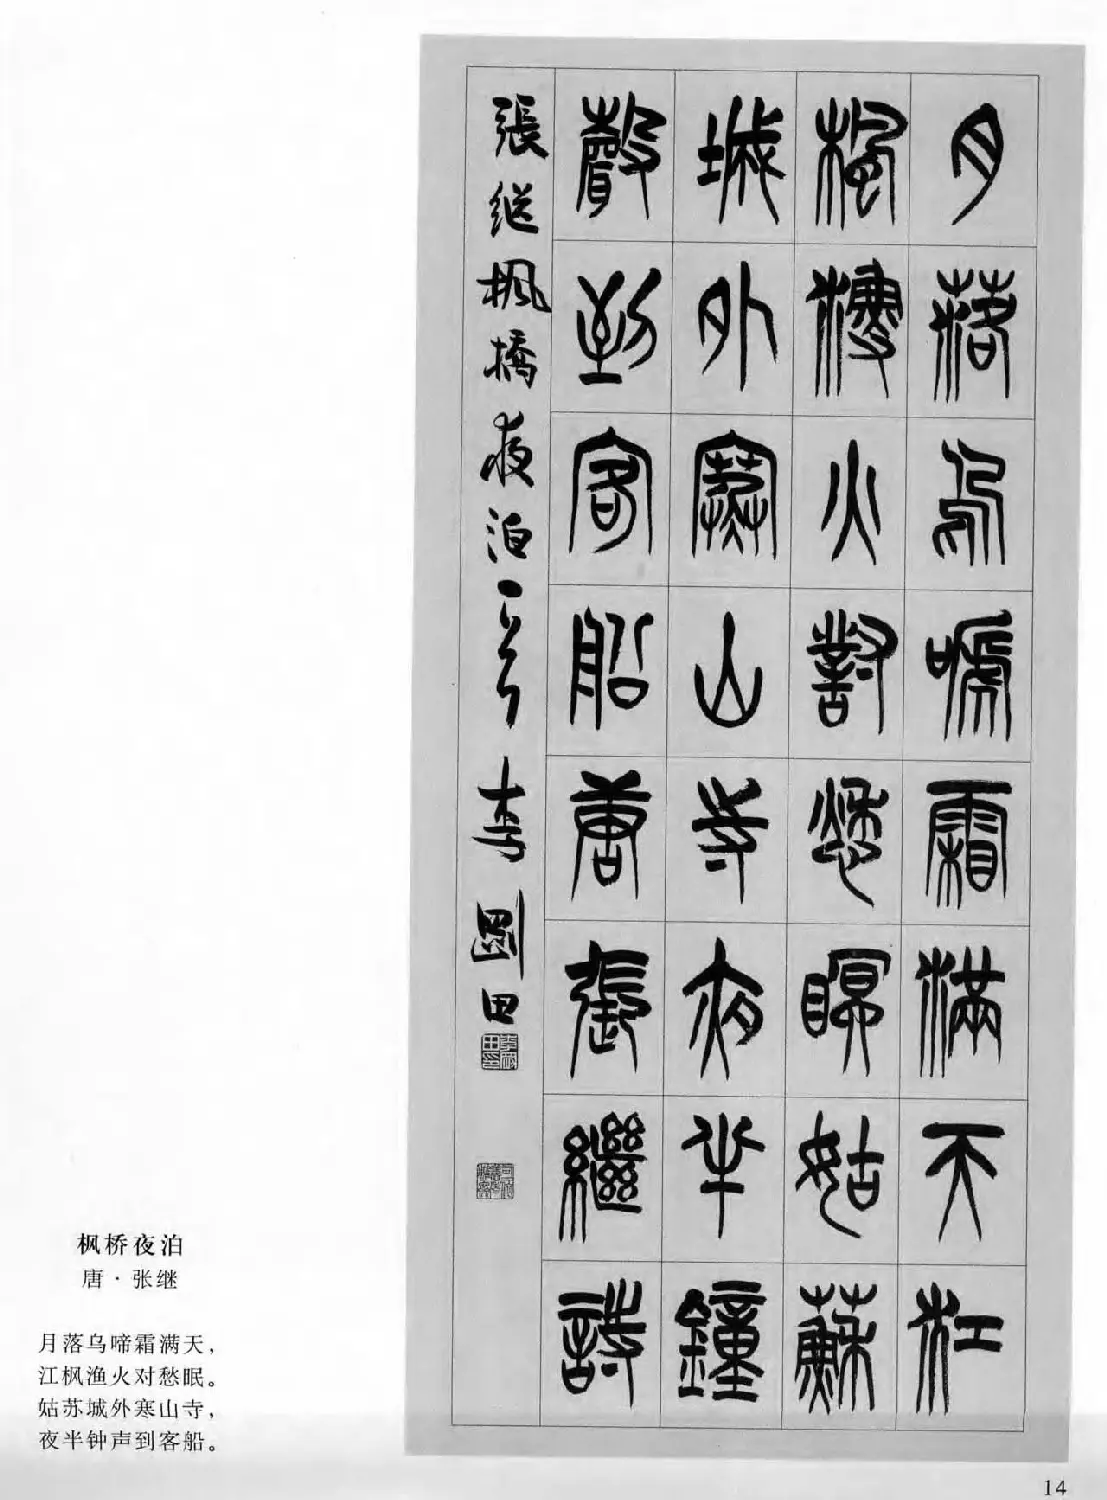 月落烏嗁霜滿天江
楓漁火對愁瞑姑蘇
城外寒山寺夜半鐘
聲到客船唐張繼詩
張継楓橋夜泊一首 李剛田
枫桥夜泊
唐·张继
月落乌啼霜满天，
江枫渔火对愁眠。
姑苏城外寒山寺，
夜半钟声到客船。
14